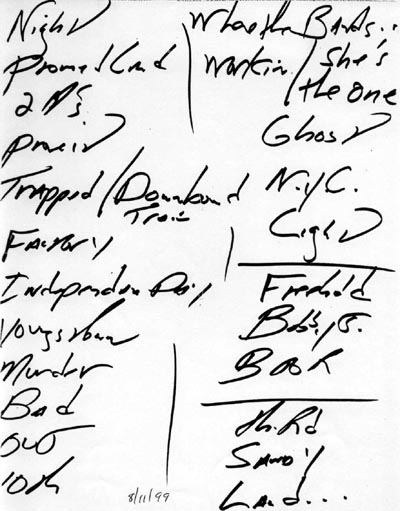 Night
Promised Land
Prove it
Trapped / Downbound
Train
Factory
Independen Day
Youngstown
Murder
Bad
OUT
10th
8/11/99
Where the Bands..
Workin / She's
the one
Ghost
N.Y.C.
Light
Freehold
Bobby J.
Third
Sandy
Land...